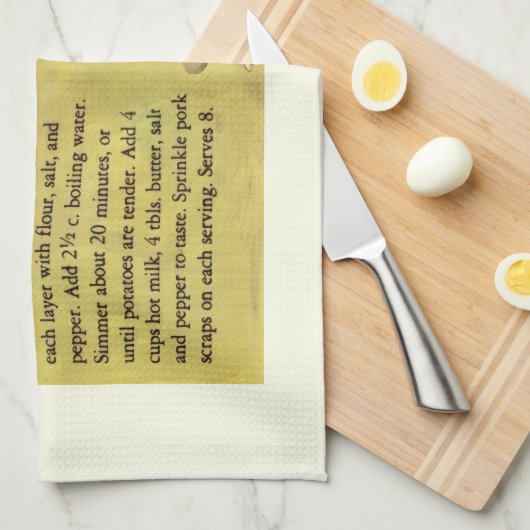 each layer with flour, salt, and
pepper. Add 2½ c. boiling water.
Simmer about 20 minutes, or
until potatoes are tender. Add 4
cups hot milk, 4 tbls. butter, salt
and pepper to taste. Sprinkle pork
scraps on each serving. Serves 8.